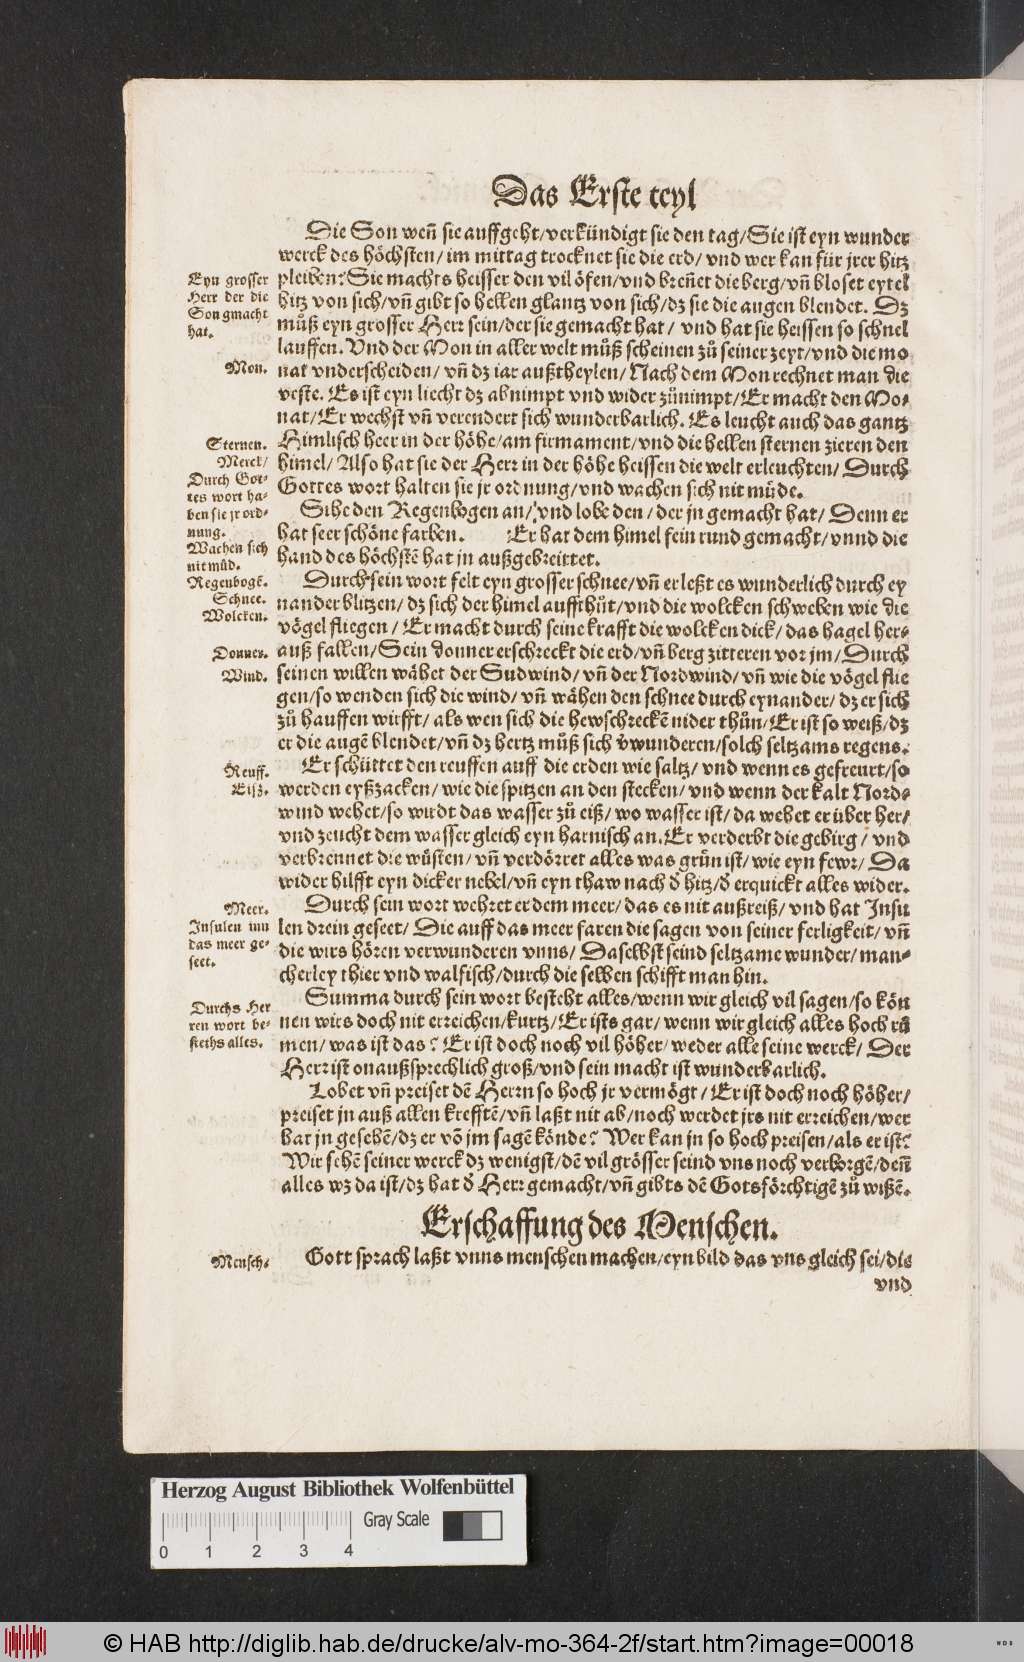 Das Erste teyl
Die Son weñ sie auffgeht/verkündigt sie den tag/Sie ist eyn wunder
werck des höchsten/ im mittag trocknet sie die erd/ vnd wer kan für jrer hitz
pleiben? Sie machts heisser den vil öfen/vnd breñet die berg/vñ bloset eytel
hitz von sich/vñ gibt so hellen glantz von sich/dz sie die augen blendet. Dz
můß eyn grosser Herr sein/der sie gemacht hat/ vnd hat sie heissen so schnel
lauffen. Vnd der Mon in aller welt můß scheinen zů seiner zeyt/vnd die mo
nat vnderscheiden/ vñ dz iar außtheylen/ Nach dem Mon rechnet man die
veste. Es ist eyn liecht dz abnimpt vnd wider zůnimpt/Er macht den Mo-
nat/Er wechst vñ verendert sich wunderbarlich. Es leucht auch das gantz
Himlisch heer in der höhe/am firmament/vnd die hellen sternen zieren den
himel/ Also hat sie der Herr in der höhe heissen die welt erleuchten/ Durch
Gottes wort halten sie jr ordnung/vnd wachen sich nit müde.
Sihe den Regenbogen an/ vnd lobe den/ der jn gemacht hat/ Denn er
hat seer schöne farben. Er hat dem himel fein rund gemacht/vnnd die
hand des höchstē hat jn außgebreittet.
Durch sein wort felt eyn grosser schnee/vñ er leßt es wunderlich durch ey
nander blitzen/ dz sich der himel auffthůt/vnd die wolcken schweben wie die
vögel fliegen/ Er macht durch seine krafft die wolcken dick/das hagel her-
auß fallen/Sein donner erschreckt die erd/vñ berg zitteren vor jm/Durch
seinen willen wähet der Sudwind/ vñ der Nordwind/vñ wie die vögel flie
gen/so wenden sich die wind/ vñ wähen den schnee durch eynander/dz er sich
zů hauffen wirfft/ als wen sich die hewschreckē nider thůn/Er ist so weiß/dz
er die augē blendet/vñ dz hertz můß sich v̄wunderen/solch seltzams regens.
Er schüttet den reuffen auff die erden wie saltz/ vnd wenn es gefreurt/so
werden eyßzacken/ wie die spitzen an den stecken/ vnd wenn der kalt Nord-
wind wehet/so wirdt das wasser zů eiß/ wo wasser ist/ da wehet er über her/
vnd zeucht dem wasser gleich eyn harnisch an. Er verderbt die gebirg/ vnd
verbrennet die wüsten/ vñ verdörret alles was grün ist/wie eyn fewr/ Da
wider hilfft eyn dicker nebel/vñ eyn thaw nach d̄ hitz/d̄ erquickt alles wider.
Durch sein wort wehret er dem meer/das es nit außreiß/ vnd hat Insu
len drein geseet/ Die auff das meer faren die sagen von seiner ferligkeit/ vñ
die wirs hören verwunderen vnns/ Daselbst seind seltzame wunder/ man-
cherley thier vnd walfisch/durch die selben schifft man hin.
Summa durch sein wort besteht alles/wenn wir gleich vil sagen/so kön
nen wirs doch nit erreichen/kurtz/Er ists gar/ wenn wir gleich alles hoch rů
men/ was ist das? Er ist doch noch vil höher/ weder alle seine werck/ Der
Herr ist onaußsprechlich groß/vnd sein macht ist wunderbarlich.
Lobet vñ preiset dē Herrn so hoch jr vermögt/ Er ist doch noch höher/
preiset jn auß allen krefftē/vñ laßt nit ab/noch werdet jrs nit erreichen/wer
hat jn gesehē/dz er vō jm sagē könde? Wer kan jn so hoch preisen/als er ist?
Wir sehē seiner werck dz wenigst/dē vil grösser seind vns noch verborgē/deñ
alles wz da ist/dz hat d̄ Herr gemacht/vñ gibts dē Gotsförchtigē zů wißē.
Erschaffung des Menschen.
Gott sprach laßt vnns menschen machen/eyn bild das vns gleich sei/die
vnd
Eyn grosser
Herr der die
Son gmacht
hat.
Mon.
Sternen.
Merck/
Durch Got-
tes wort ha-
ben sie jr ord-
nung.
Wachen sich
nit müd.
Regenbogē.
Schnee.
Wolcken.
Donner.
Wind.
Reuff.
Eisz.
Meer.
Insulen inn
das meer ge-
seet.
Durchs Her
ren wort be-
stehts alles.
Mensch.
Herzog August Bibliothek Wolfenbüttel
Gray Scale
0 1 2 3 4
© HAB http://diglib.hab.de/drucke/alv-mo-364-2f/start.htm?image=00018